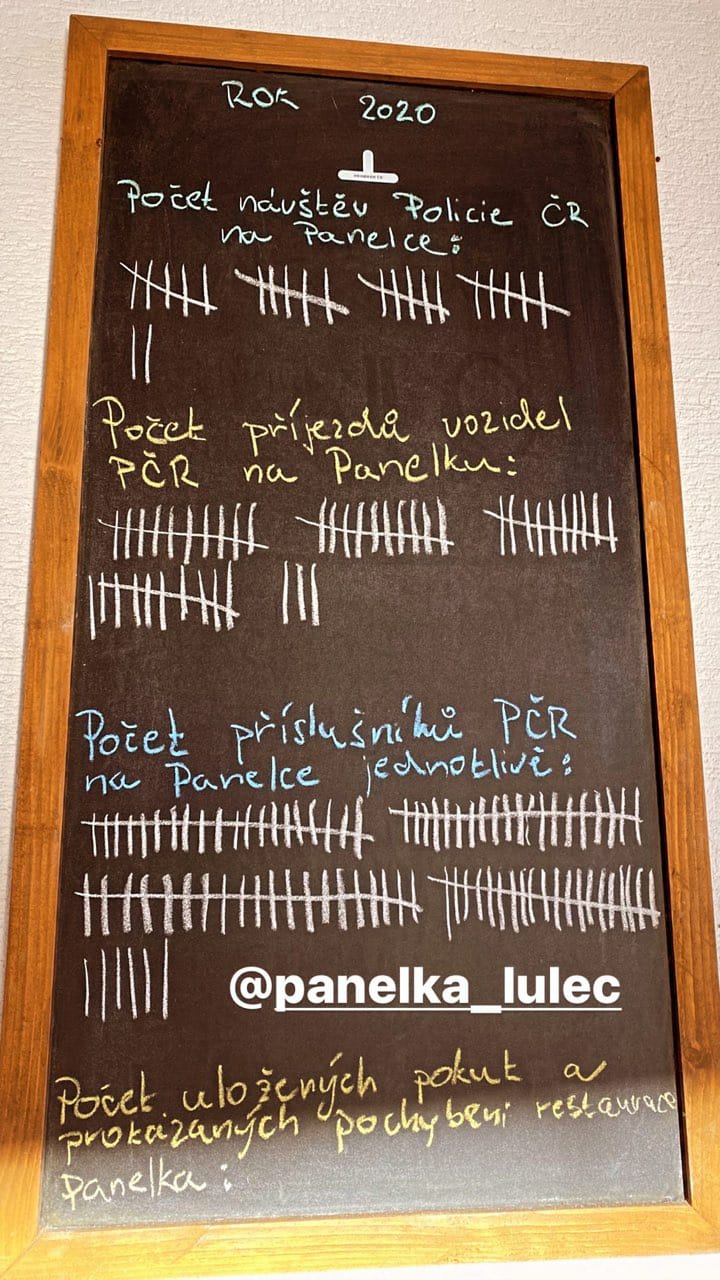 ROK 2020
Počet návštěv Policie ČR
na Panelce:
Počet příjezdů vozidel
PČR na Panelku:
Počet příslušníků PČR
na Panelce jednotlivě:
@panelka_lulec
Počet uložených pokut a
prokázaných pochybení restaurace
Panelka: